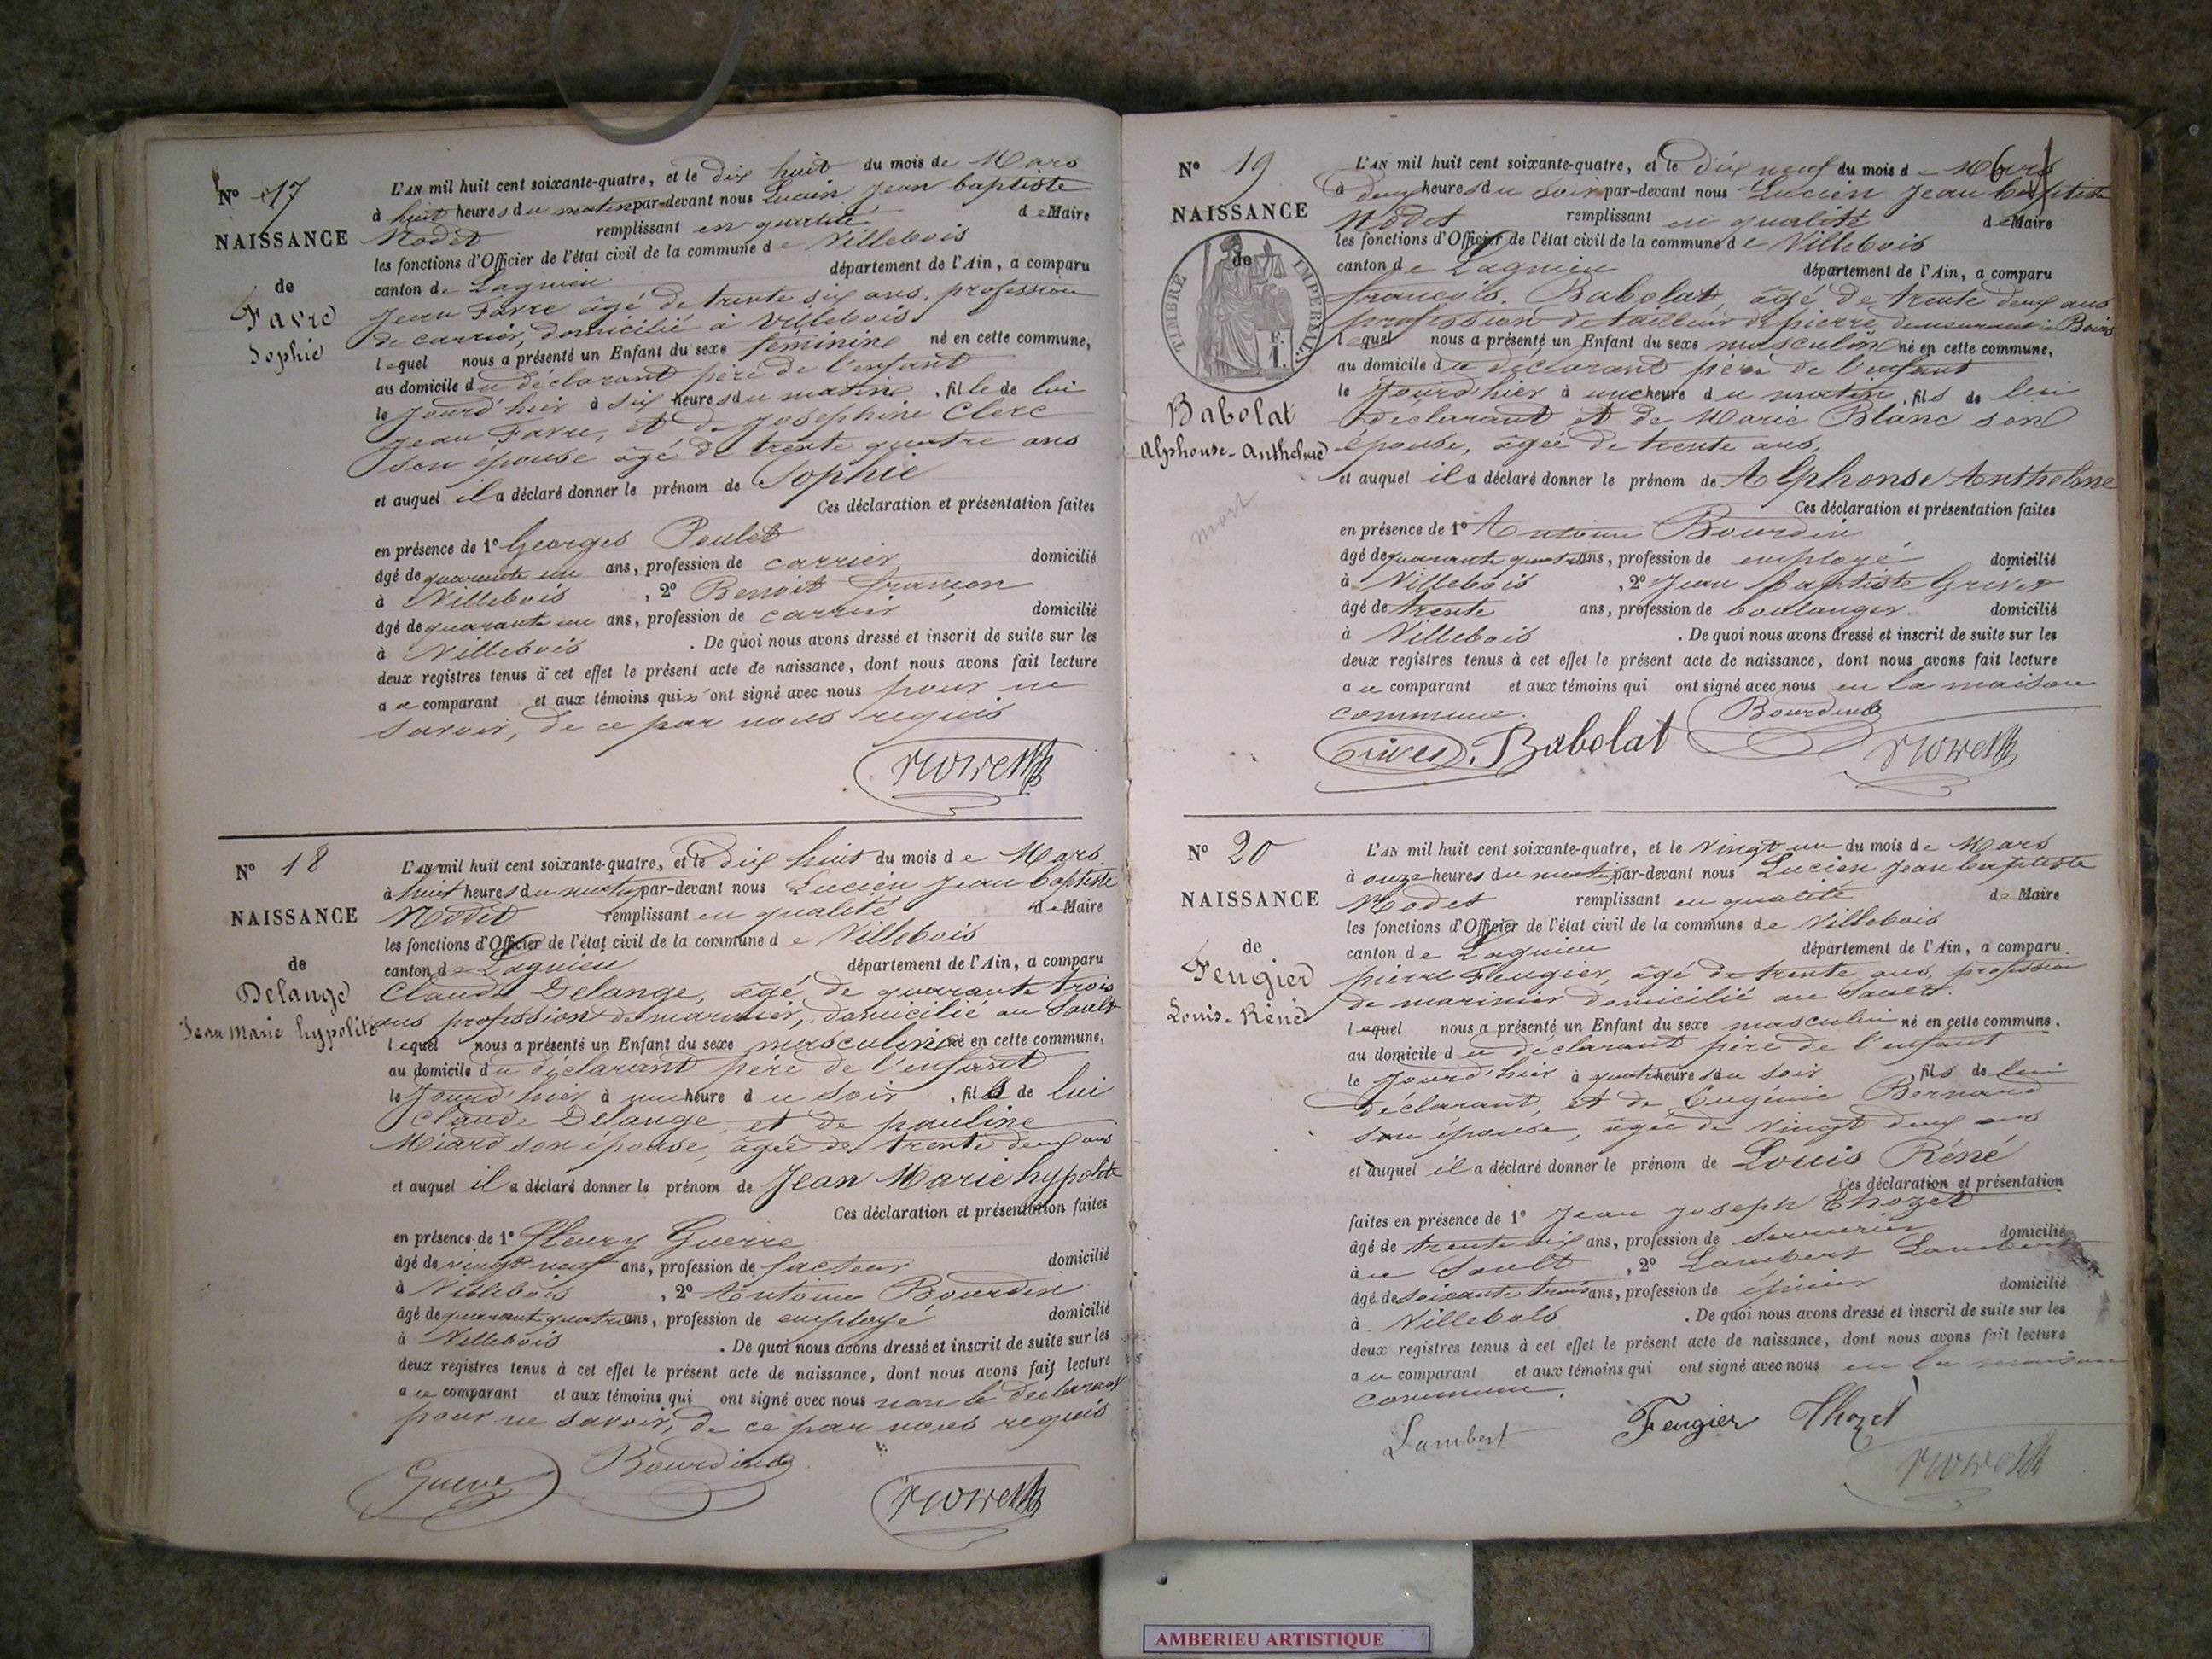 N° 17
NAISSANCE
de
Favre
Sophie
L'AN mil huit cent soixante-quatre, et le dix huit du mois de Mars
à huit heures du matin par-devant nous Lucien Jean baptiste
Nodet remplissant en qualité de Maire
les fonctions d'Officier de l'état civil de la commune de Villebois
canton de Lagnieu département de l'Ain, a comparu
Jean Favre âgé de trente six ans, profession
de carrier, domicilié à Villebois
lequel nous a présenté un Enfant du sexe féminine né en cette commune,
au domicile du déclarant père de l'enfant
le Jourd'hier à six heures du matin, fille de lui
Jean Favre, et de Josephine Clerc
son épouse âgé de trente quatre ans
et auquel il a déclaré donner le prénom de Sophie
Ces déclaration et présentation faites
en présence de 1° Georges Peulet
âgé de quarante un ans, profession de carrier domicilié
à Villebois, 2° Benoit françon
âgé de quarante un ans, profession de carrier domicilié
à Villebois. De quoi nous avons dressé et inscrit de suite sur les
deux registres tenus à cet effet le présent acte de naissance, dont nous avons fait lecture
au comparant et aux témoins qui n'ont signé avec nous pour ne
savoir, de ce par nous requis
N° 18
NAISSANCE
de
Delange
Jean Marie hypolite
L'AN mil huit cent soixante-quatre, et le dix huit du mois de Mars
à huit heures du matin par-devant nous Lucien Jean baptiste
Nodet remplissant en qualité de Maire
les fonctions d'Officier de l'état civil de la commune de Villebois
canton de Lagnieu département de l'Ain, a comparu
Claude Delange, âgé de quarante trois
ans profession de marinier, domicilié au Sault
lequel nous a présenté un Enfant du sexe masculin né en cette commune,
au domicile du déclarant père de l'enfant
le Jourd'hier à une heure du soir, fils de lui
Claude Delange et de pauline
Méard son épouse, âgée de trente deux ans
et auquel il a déclaré donner le prénom de Jean Marie hypolite
Ces déclaration et présentation faites
en présence de 1° fleury Guerre
âgé de vingt neuf ans, profession de facteur domicilié
à Villebois, 2° Antoine Bourdin
âgé de quarante quatre ans, profession de employé domicilié
à Villebois. De quoi nous avons dressé et inscrit de suite sur les
deux registres tenus à cet effet le présent acte de naissance, dont nous avons fait lecture
au comparant et aux témoins qui ont signé avec nous non le declarant
pour ne savoir, de ce par nous requis
Guerre Bourdin
N° 19
NAISSANCE
de
TIMBRE IMPERIAL
Babolat
Alphonse-Anthelme
mort
L'AN mil huit cent soixante-quatre, et le dix neuf du mois de Mars
à deux heures du soir par-devant nous Lucien Jean baptiste
Nodet remplissant en qualité de Maire
les fonctions d'Officier de l'état civil de la commune de Villebois
canton de Lagnieu département de l'Ain, a comparu
françois Babolat, âgé de trente deux ans
profession de tailleur de pierre, demeurant à Bouis
lequel nous a présenté un Enfant du sexe masculin né en cette commune,
au domicile du déclarant père de l'enfant
le Jourd'hier à une heure du matin, fils de lui
declarant et de Marie Blanc son
épouse, âgée de trente ans,
et auquel il a déclaré donner le prénom de Alphonse Anthelme
Ces déclaration et présentation faites
en présence de 1° Antoine Bourdin
âgé de quarante quatre ans, profession de employé domicilié
à Villebois, 2° Jean baptiste Grivet
âgé de trente ans, profession de boulanger domicilié
à Villebois. De quoi nous avons dressé et inscrit de suite sur les
deux registres tenus à cet effet le présent acte de naissance, dont nous avons fait lecture
au comparant et aux témoins qui ont signé avec nous en la maison
commune.
Bourdin
Grivet Babolat
N° 20
NAISSANCE
de
Feugier
Louis-Réné
L'AN mil huit cent soixante-quatre, et le vingt un du mois de Mars
à onze heures du matin par-devant nous Lucien Jean baptiste
Nodet remplissant en qualité de Maire
les fonctions d'Officier de l'état civil de la commune de Villebois
canton de Lagnieu département de l'Ain, a comparu
pierre Feugier, âgé de trente ans, profession
de marinier domicilié au Sault.
lequel nous a présenté un Enfant du sexe masculin né en cette commune,
au domicile du déclarant père de l'enfant
le Jourd'hier à quatre heures du soir fils de lui
déclarant, et de Eugénie Bernard
son épouse, âgée de vingt deux ans
et auquel il a déclaré donner le prénom de Louis Réné
Ces déclaration et présentation
faites en présence de 1° Jean Joseph Thozet
âgé de trente six ans, profession de serrurier domicilié
au Sault, 2° Lambert Lambert
âgé de soixante trois ans, profession de épicier domicilié
à Villebois. De quoi nous avons dressé et inscrit de suite sur les
deux registres tenus à cet effet le présent acte de naissance, dont nous avons fait lecture
au comparant et aux témoins qui ont signé avec nous en la maison
commune.
Lambert Feugier Thozet
AMBERIEU ARTISTIQUE